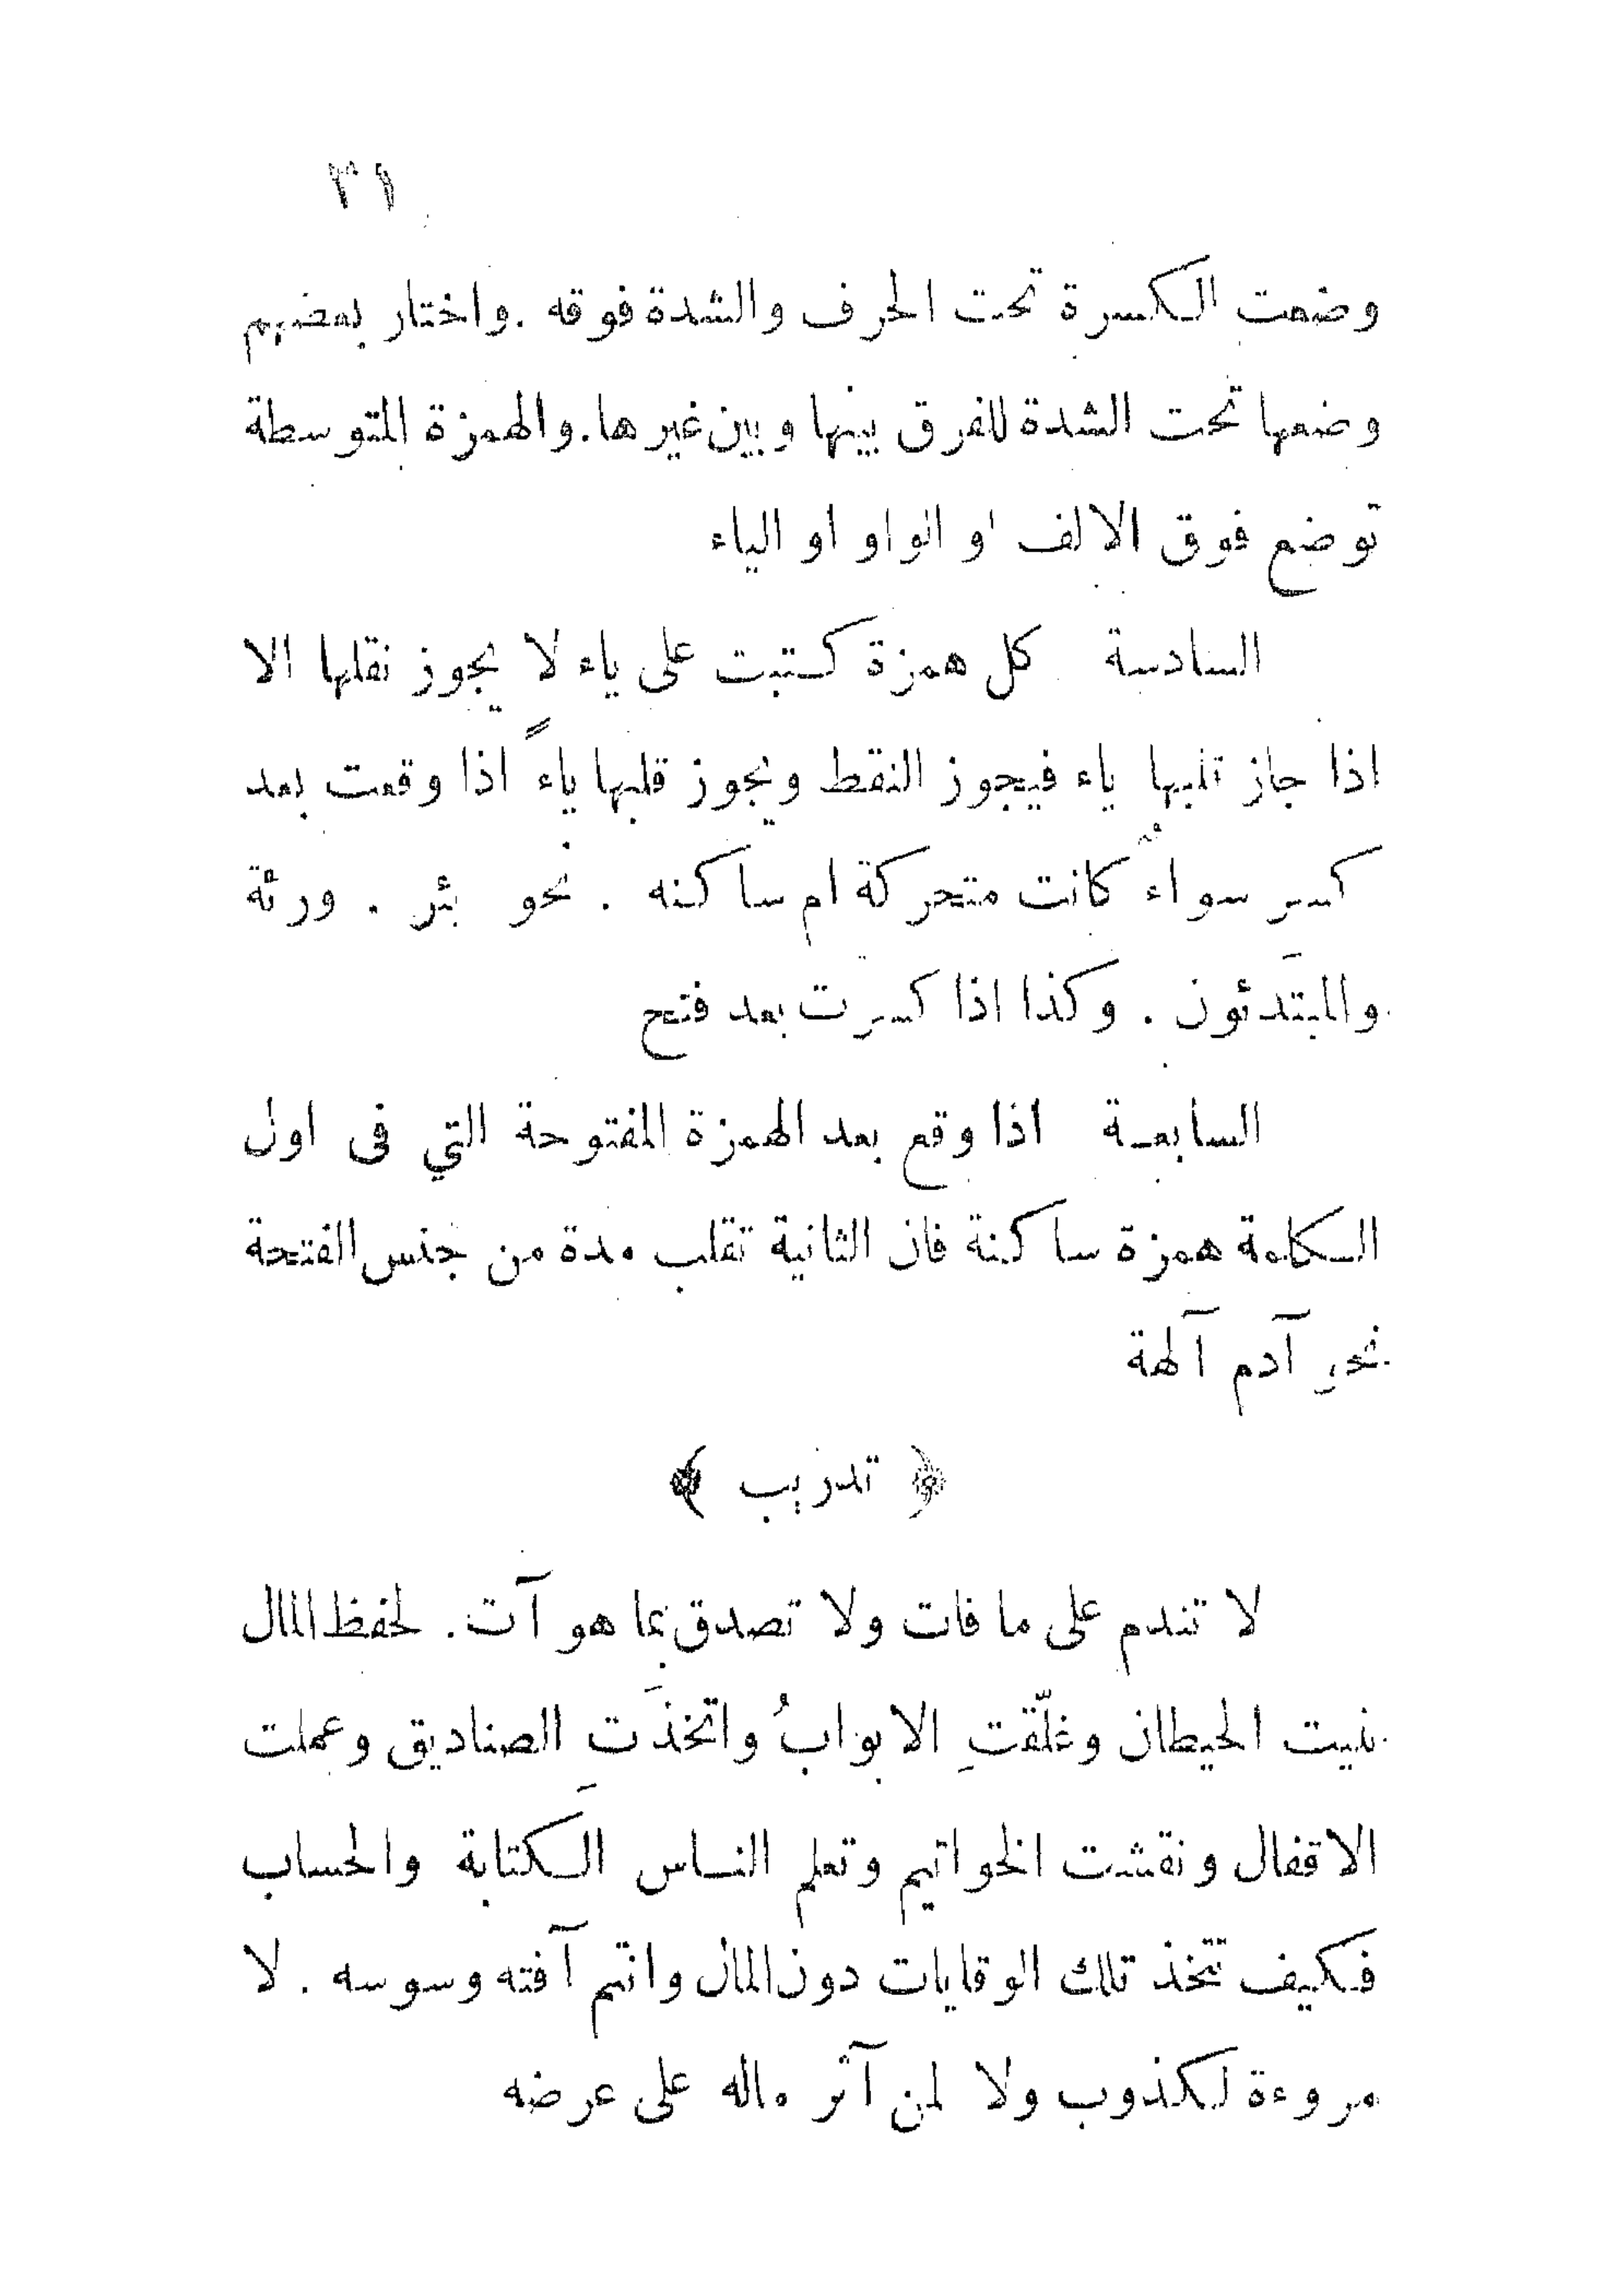 ٣١
وضعت الكسرة تحت الحرف والشدة فوقه . واختار بعضهم
وضعها تحت الشدة للفرق بينها وبين غيرها . والهمزة المتوسطة
توضع فوق الالف او الواو او الياء
السادسة كل همزة كتبت على ياء لا يجوز نقلها الا
اذا جاز قلبها ياء فيجوز النقط ويجوز قلبها ياءً اذا وقعت بعد
كسر سواءٌ كانت متحركة ام ساكنه . نحو بئر . ورئة
والمبتَدئون . وكذا اذا كسرت بعد فتح
السابعة اذا وقع بعد الهمزة المفتوحة التي فى اول
الكلمة همزة ساكنة فان الثانية تقلب مدة من جنس الفتحة
نحو آدم آلهة
﴿ تدريب ﴾
لا تندم على ما فات ولا تصدق بما هو آت . لحفظ المال
بنيت الحيطان وغلّقتِ الابوابُ واتخذَت الصناديق وعملت
الاقفال ونقشت الخواتيم وتعلم الناس الكتابة والحساب
فكيف تتخذ تلك الوقايات دون المال وانتم آفته وسوسه . لا
مروءة لكذوب ولا لمن آثر ماله على عرضه